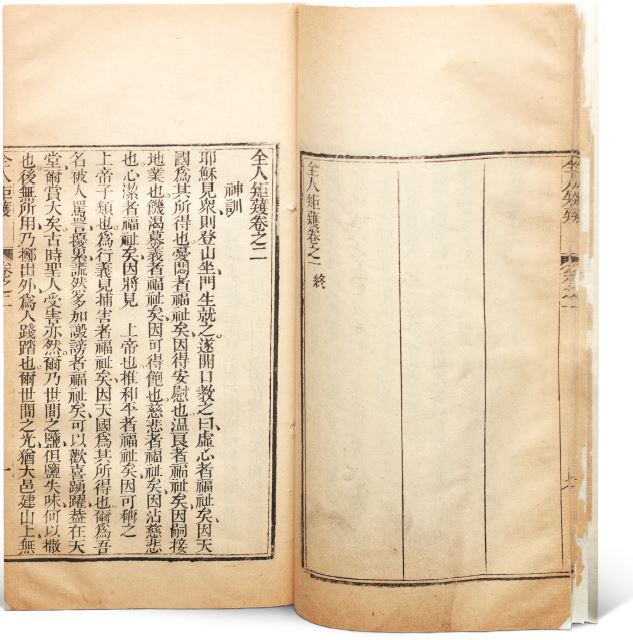 全人矩矱 卷之一
全人矩矱卷之一 終
全人矩矱卷之二
神訓
耶穌見衆則登山坐門生就之遂開口教之曰虛心者福祉矣因天
國爲其所得也憂悶者福祉矣因得安慰也温良者福祉矣因嗣接
地業也饑渴慕義者福祉矣因可得飽也慈悲者福祉矣因沾慈悲
也心潔者福祉矣因將見 上帝也推和平者福祉矣因可稱之
上帝子類也爲行義見捕害者福祉矣因天國爲其所得也爾爲吾
名被人罵詈擾累謊然多如譭謗者福祉矣可以歡喜踴躍葢在天
堂爾賞大矣古時聖人受害亦然爾乃世間之鹽但鹽失味何以撒
也後無所用乃擲出外爲人踐踏也爾世間之光猶大邑建山上無
全人矩矱 卷之二 一